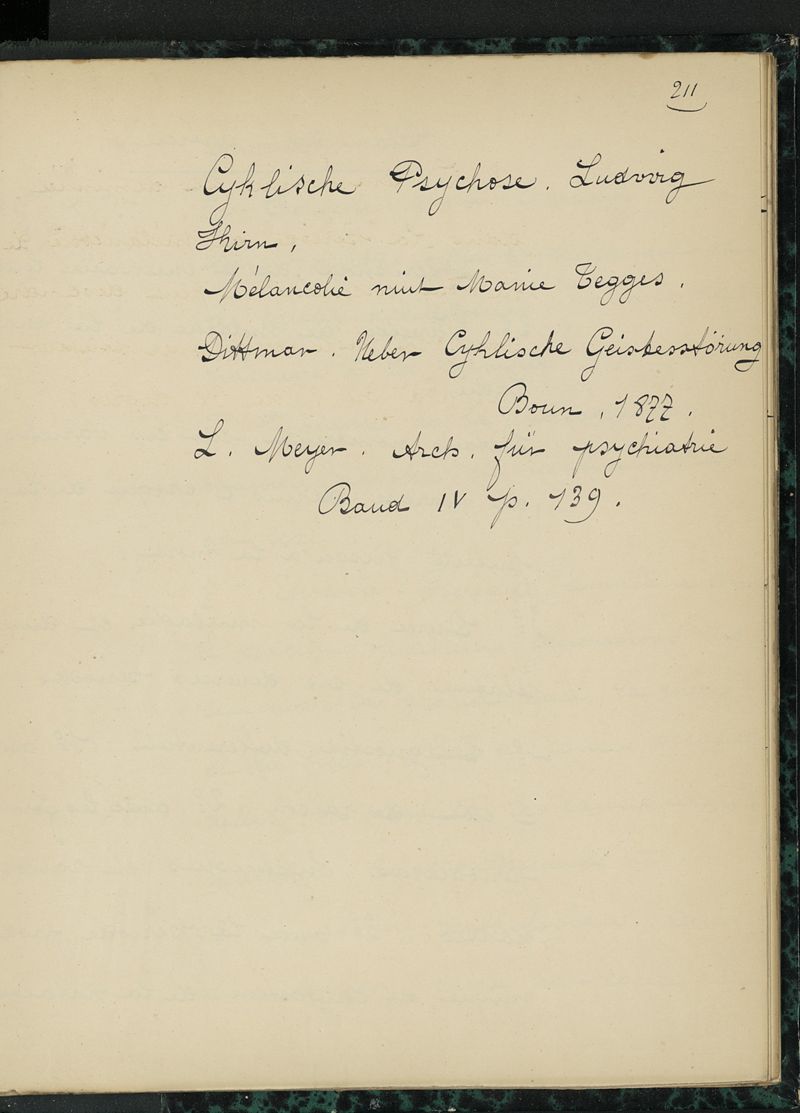 211
Cyklische Psychose. Ludwig
Khirn,
Mélancolie mint Manie Tegges.
Dittmar. Ueber Cyklische Geistesstörung
Boun, 1877.
L. Meyer. Arch. für psychiatrie
Band IV p. 139.